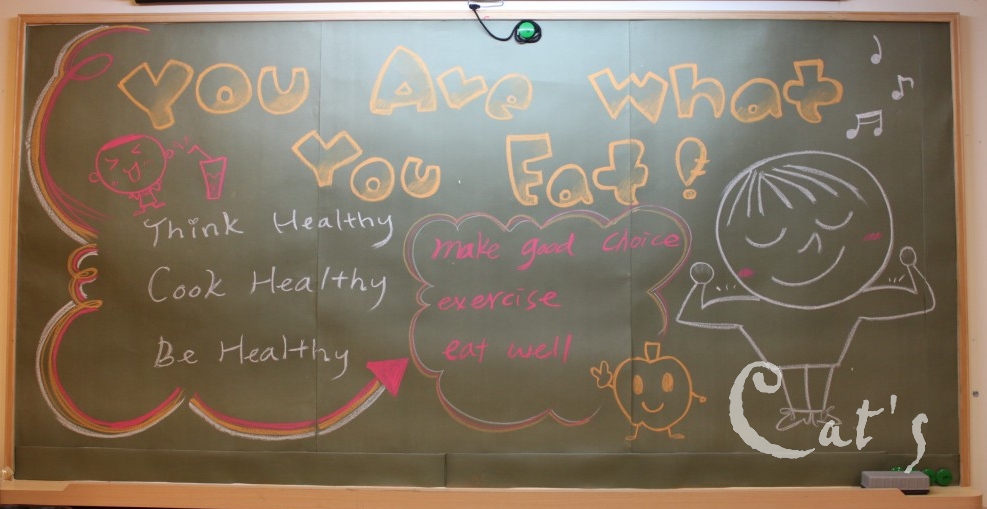 You Are What
You Eat!
Think Healthy
Cook Healthy
Be Healthy
make good choice
exercise
eat well
Cat's